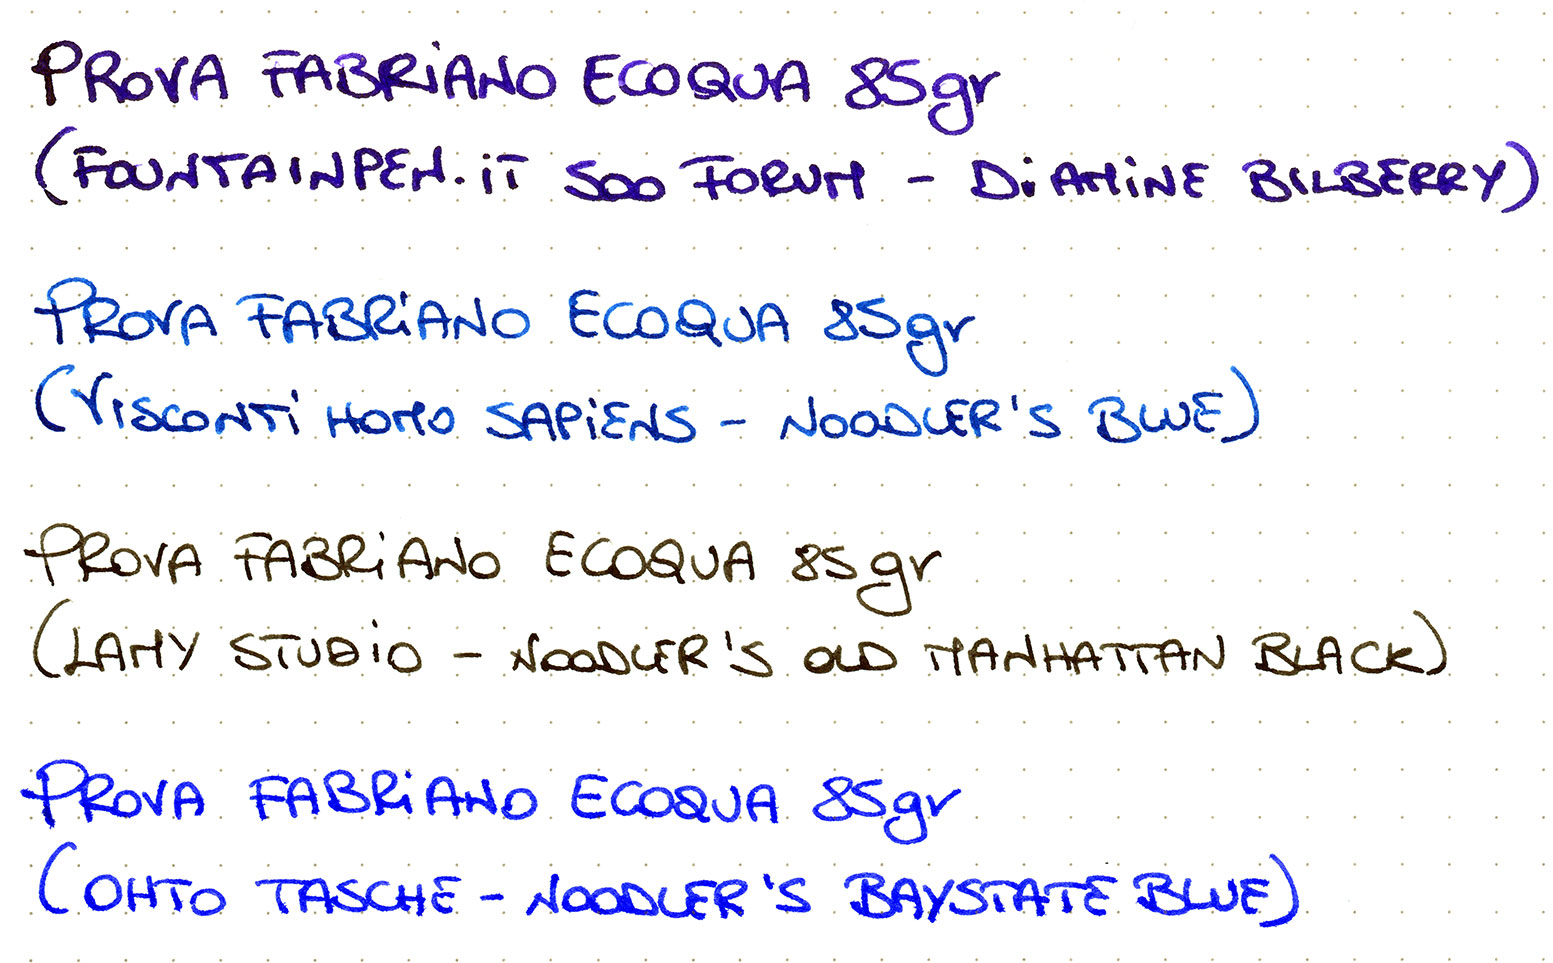 PROVA FABRIANO ECOQUA 85gr
(FOUNTAINPEN.iT 500 FORUM - DiAMiNE BILBERRY)
PROVA FABRiANO ECOQUA 85gr
(VISCONTi HOMO SAPiENS - NOODLER'S BLUE)
PROVA FABRiANO ECOQUA 85gr
(LAMY STUDiO - NOODLER'S OLD MANHATTAN BLACK)
PROVA FABRiANO ECOQUA 85gr
(OHTO TASCHE - NOODLER'S BAYSTATE BLUE)